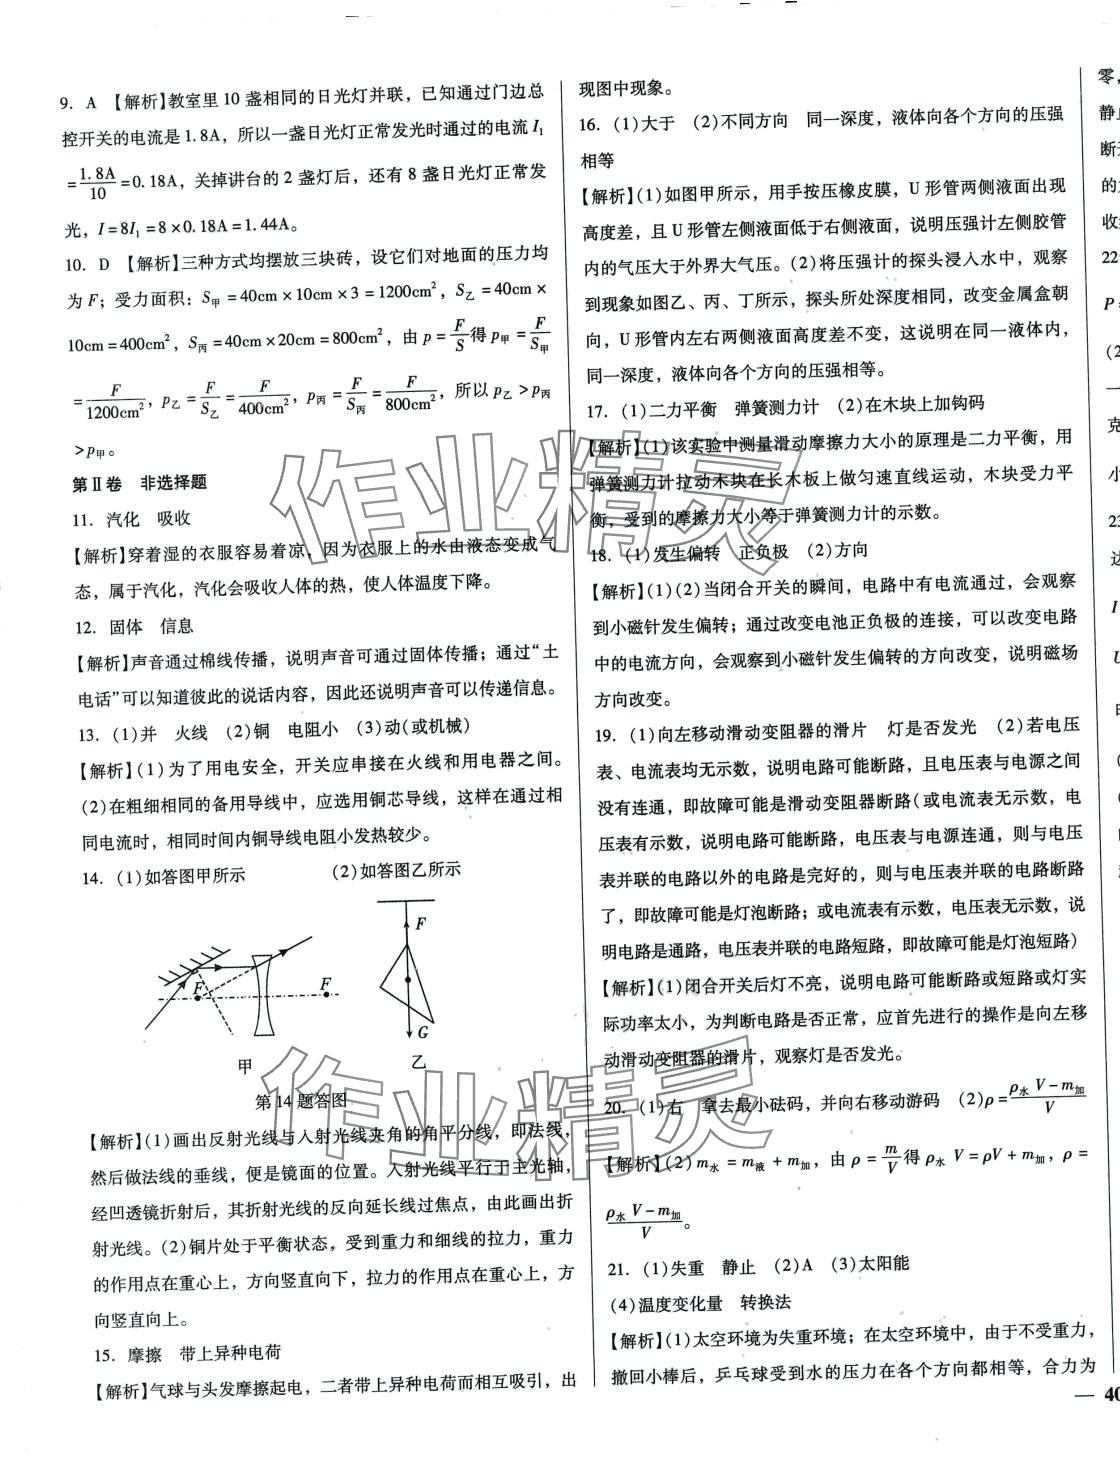 9. A 【解析】教室里 10 盏相同的日光灯并联，已知通过门边总
控开关的电流是 1.8A，所以一盏日光灯正常发光时通过的电流 I₁
=1.8A/10=0.18A，关掉讲台的 2 盏灯后，还有 8 盏日光灯正常发
光，I=8I₁=8×0.18A=1.44A。
10. D 【解析】三种方式均摆放三块砖，设它们对地面的压力均
为 F；受力面积：S甲=40cm×10cm×3=1200cm²，S乙=40cm×
10cm=400cm²，S丙=40cm×20cm=800cm²，由 p=F/S得 p甲=F/S甲
=F/1200cm²，p乙=F/S乙=F/400cm²，p丙=F/S丙=F/800cm²，所以 p乙>p丙
>p甲。
第Ⅱ卷 非选择题
11. 汽化 吸收
【解析】穿着湿的衣服容易着凉，因为衣服上的水由液态变成气
态，属于汽化，汽化会吸收人体的热，使人体温度下降。
12. 固体 信息
【解析】声音通过棉线传播，说明声音可通过固体传播；通过“土
电话”可以知道彼此的说话内容，因此还说明声音可以传递信息。
13. (1)并 火线 (2)铜 电阻小 (3)动(或机械)
【解析】(1)为了用电安全，开关应串接在火线和用电器之间。
(2)在粗细相同的备用导线中，应选用铜芯导线，这样在通过相
同电流时，相同时间内铜导线电阻小发热较少。
14. (1)如答图甲所示 (2)如答图乙所示
F F
甲
F
G
乙
第 14 题答图
【解析】(1)画出反射光线与入射光线夹角的角平分线，即法线，
然后做法线的垂线，便是镜面的位置。入射光线平行于主光轴，
经凹透镜折射后，其折射光线的反向延长线过焦点，由此画出折
射光线。(2)铜片处于平衡状态，受到重力和细线的拉力，重力
的作用点在重心上，方向竖直向下，拉力的作用点在重心上，方
向竖直向上。
15. 摩擦 带上异种电荷
【解析】气球与头发摩擦起电，二者带上异种电荷而相互吸引，出
现图中现象。
16. (1)大于 (2)不同方向 同一深度，液体向各个方向的压强
相等
【解析】(1)如图甲所示，用手按压橡皮膜，U 形管两侧液面出现
高度差，且 U 形管左侧液面低于右侧液面，说明压强计左侧胶管
内的气压大于外界大气压。(2)将压强计的探头浸入水中，观察
到现象如图乙、丙、丁所示，探头所处深度相同，改变金属盒朝
向，U 形管内左右两侧液面高度差不变，这说明在同一液体内，
同一深度，液体向各个方向的压强相等。
17. (1)二力平衡 弹簧测力计 (2)在木块上加钩码
【解析】(1)该实验中测量滑动摩擦力大小的原理是二力平衡，用
弹簧测力计拉动木块在长木板上做匀速直线运动，木块受力平
衡，受到的摩擦力大小等于弹簧测力计的示数。
18. (1)发生偏转 正负极 (2)方向
【解析】(1)(2)当闭合开关的瞬间，电路中有电流通过，会观察
到小磁针发生偏转；通过改变电池正负极的连接，可以改变电路
中的电流方向，会观察到小磁针发生偏转的方向改变，说明磁场
方向改变。
19. (1)向左移动滑动变阻器的滑片 灯是否发光 (2)若电压
表、电流表均无示数，说明电路可能断路，且电压表与电源之间
没有连通，即故障可能是滑动变阻器断路(或电流表无示数，电
压表有示数，说明电路可能断路，电压表与电源连通，则与电压
表并联的电路以外的电路是完好的，则与电压表并联的电路断路
了，即故障可能是灯泡断路；或电流表有示数，电压表无示数，说
明电路是通路，电压表并联的电路短路，即故障可能是灯泡短路)
【解析】(1)闭合开关后灯不亮，说明电路可能断路或短路或灯实
际功率太小，为判断电路是否正常，应首先进行的操作是向左移
动滑动变阻器的滑片，观察灯是否发光。
20. (1)右 拿去最小砝码，并向右移动游码 (2)ρ=ρ水 V−m加/V
【解析】(2)m水=m液+m加，由 ρ=m/V得 ρ水 V=ρV+m加，ρ=
ρ水 V−m加/V。
21. (1)失重 静止 (2)A (3)太阳能
(4)温度变化量 转换法
【解析】(1)太空环境为失重环境；在太空环境中，由于不受重力，
撤回小棒后，乒乓球受到水的压力在各个方向都相等，合力为
零，
静止
断开
收
22
P=
(2
克
小
23
边
I
U
— 40
作业精灵
作业精灵